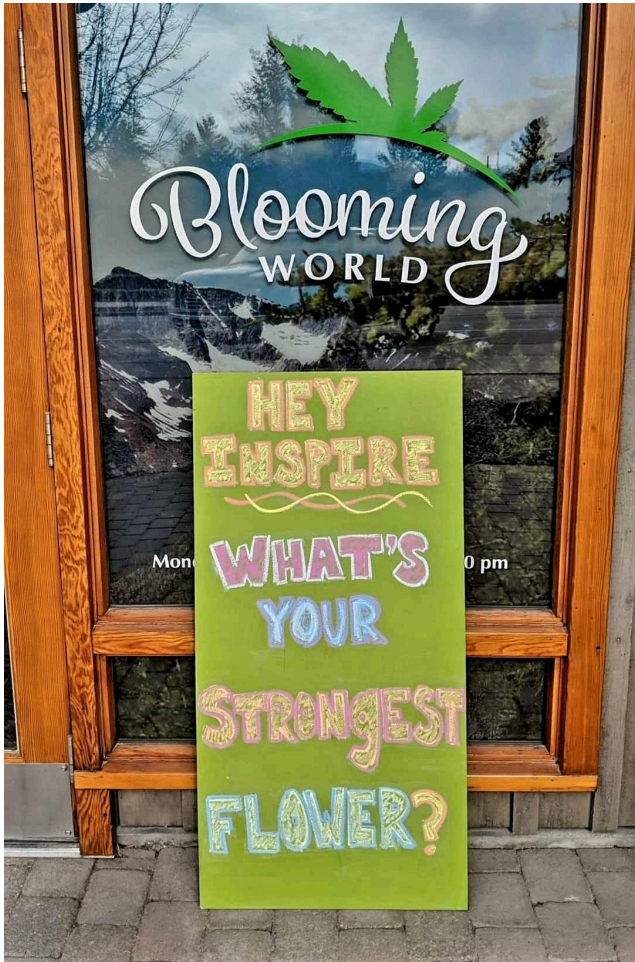 Blooming
WORLD
HEY
INSPIRE
WHAT'S
YOUR
STRONGEST
FLOWER?
0 pm